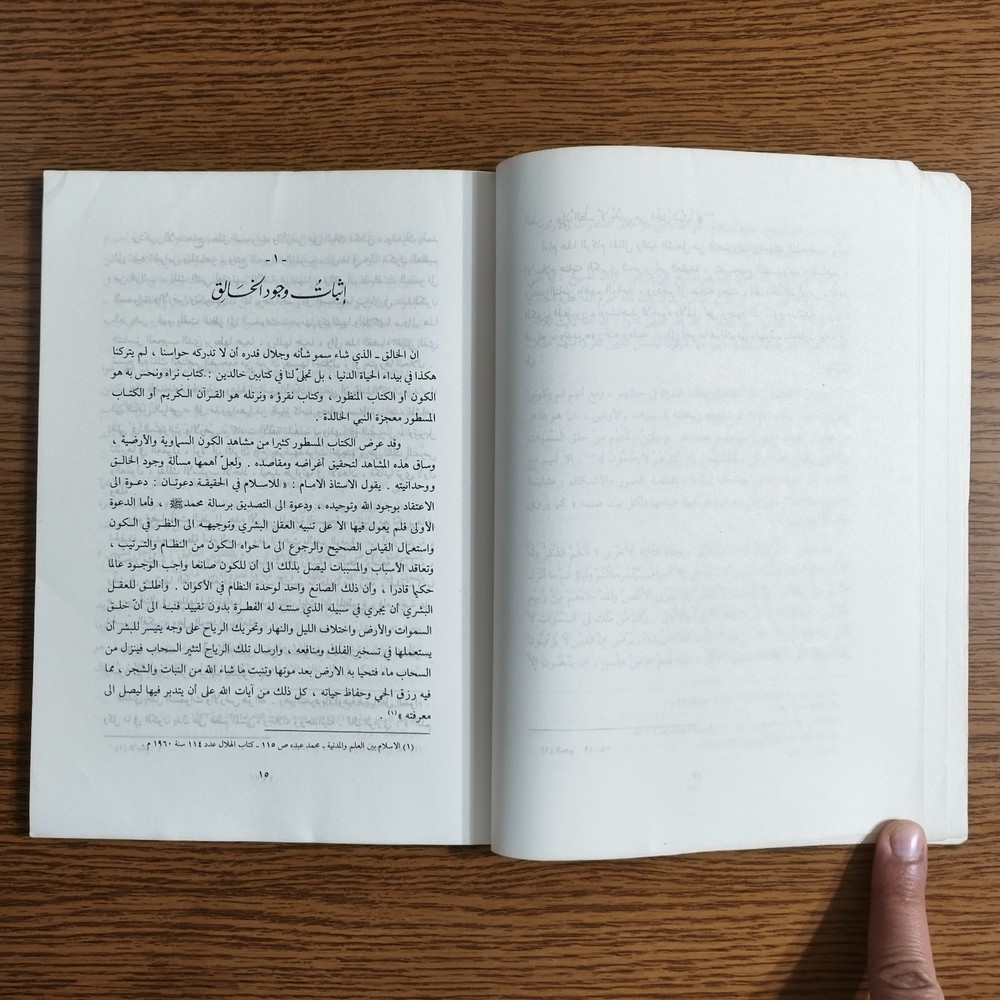 - ١ -
إثباتُ وجود الخَالق
ان الخالق ـ الذي شاء سمو شأنه وجلال قدره أن لا تدركه حواسنا ، لم يتركنا
هكذا في بيداء الحياة الدنيا ، بل تجلّى لنا في كتابين خالدين : كتاب نراه ونحس به هو
الكون أو الكتاب المنظور ، وكتاب نقرؤه ونرتله هو القرآن الكريم أو الكتاب
المسطور معجزة النبي الخالدة .
وقد عرض الكتاب المسطور كثيرا من مشاهد الكون السماوية والأرضية ،
وساق هذه المشاهد لتحقيق أغراضه ومقاصده . ولعلّ أهمها مسألة وجود الخالق
ووحدانيته . يقول الاستاذ الامام : « للاسلام في الحقيقة دعوتان : دعوة الى
الاعتقاد بوجود الله وتوحيده ، ودعوة الى التصديق برسالة محمد ﷺ ، فأما الدعوة
الأولى فلم يعول فيها الا على تنبيه العقل البشري وتوجيهه الى النظر في الكون
واستعمال القياس الصحيح والرجوع الى ما حواه الكون من النظام والترتيب ،
وتعاقد الأسباب والمسببات ليصل بذلك الى أن للكون صانعا واجب الوجود عالما
حكيما قادرا ، وأن ذلك الصانع واحد لوحدة النظام في الأكوان . وأطلق للعقل
البشري أن يجري في سبيله الذي سنته له الفطرة بدون تقييد فنبه الى أنّ خلق
السموات والأرض واختلاف الليل والنهار وتحريك الرياح على وجه يتيسر للبشر أن
يستعملها في تسخير الفلك ومنافعه ، وارسال تلك الرياح لتثير السحاب فينزل من
السحاب ماء فتحيا به الارض بعد موتها وتنبت ما شاء الله من النبات والشجر ، مما
فيه رزق الحي وحفاظ حياته ، كل ذلك من آيات الله على أن يتدبر فيها ليصل الى
معرفته » (١) .
(١) الاسلام بين العلم والمدنية ـ محمد عبده ص ١١٥ ـ كتاب الهلال عدد ١١٤ سنة ١٩٦٠ م .
١٥